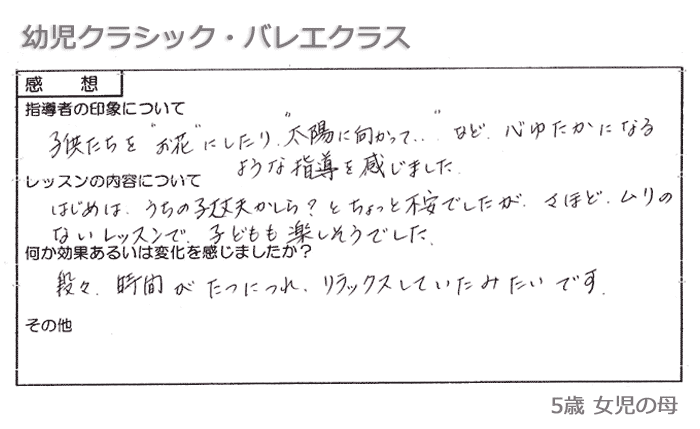 幼児クラシック・バレエクラス
感 想
指導者の印象について
子供たちを"お花"にしたり、"太陽に向かって..."など、心ゆたかになる
ような指導を感じました。
レッスンの内容について
はじめは、うちの子丈夫かしら？とちょっと不安でしたが、さほど、ムリの
ないレッスンで、子どもも楽しそうでした。
何か効果あるいは変化を感じましたか？
段々、時間がたつにつれ、リラックスしていたみたいです。
その他
5歳 女児の母